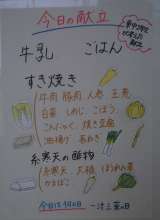 今日の献立
牛乳 ごはん
すき焼き
牛肉 豚肉 人参 玉葱
白菜 しめじ ごぼう
こんにゃく 焼き豆腐
油揚げ 長ねぎ
糸寒天の酢物
糸寒天 大根 ほうれん草
かまぼこ